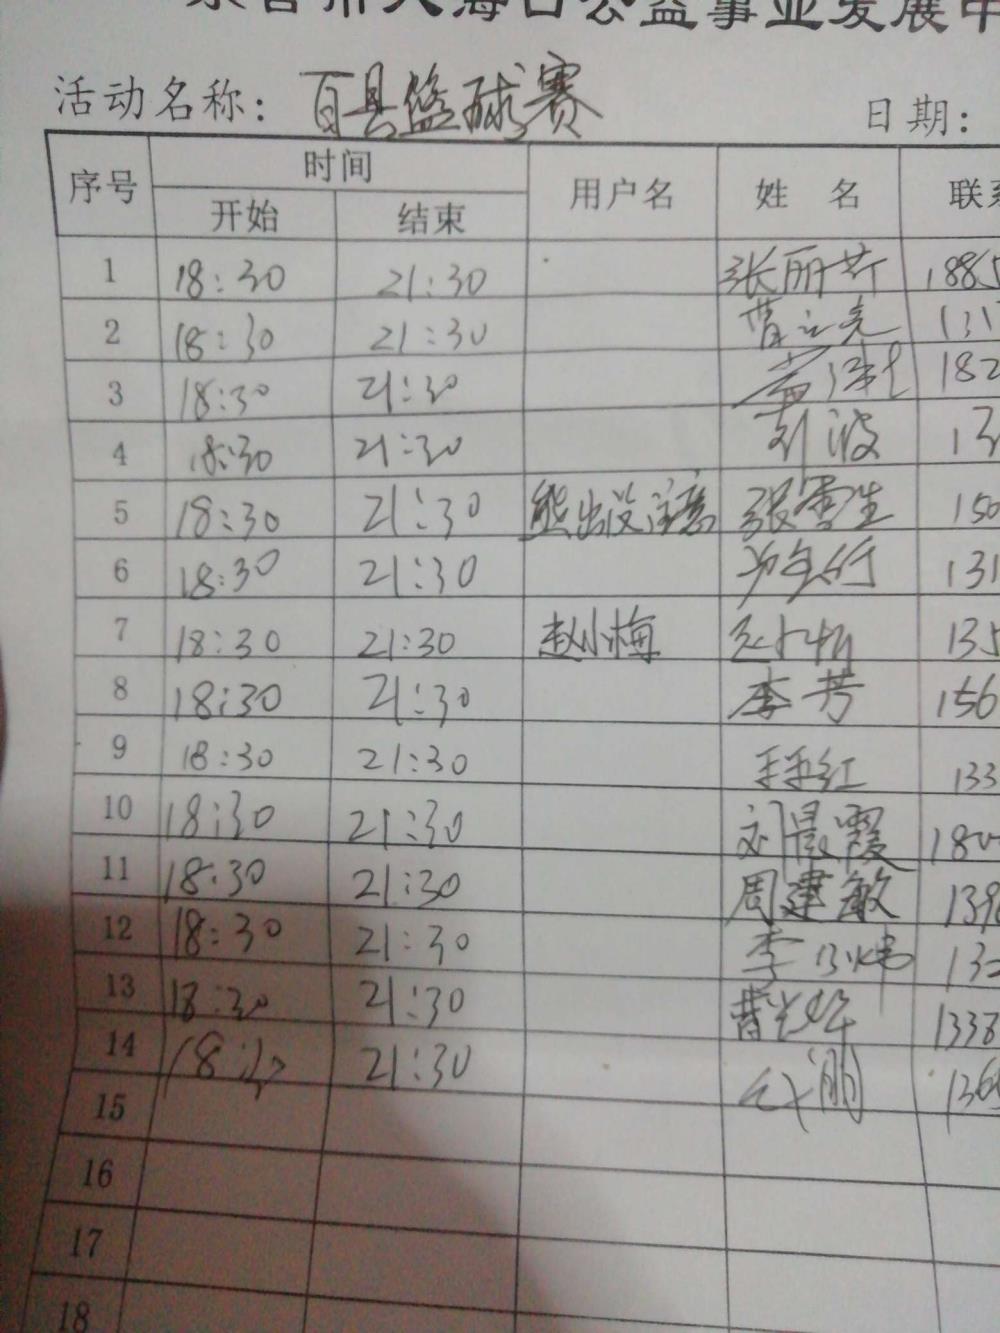 公益事业发展中
活动名称：百县篮球赛 日期：
序号 时间 用户名 姓 名 联系
开始 结束
1 18:30 21:30 张丽芬 1885
2 18:30 21:30 曹立亮 131
3 18:30 21:30 182
4 18:30 21:30 刘波 13
5 18:30 21:30 熊出没注意 张雪生 150
6 18:30 21:30 131
7 18:30 21:30 赵小梅 赵小梅 135
8 18:30 21:30 李芳 156
9 18:30 21:30 红 133
10 18:30 21:30 刘晨霞 180
11 18:30 21:30 周建敏 139
12 18:30 21:30 李 13
13 18:30 21:30 曹 1338
14 18:30 21:30 丽 136
15
16
17
18